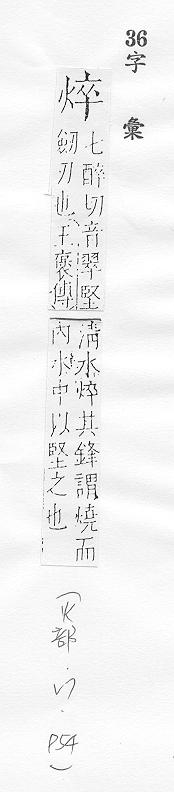 36
字彙
焠
七醉切音翠堅
刱刃也王褒傳
清水焠其鋒謂燒而
內水中以堅之也
(火部.八.P54)